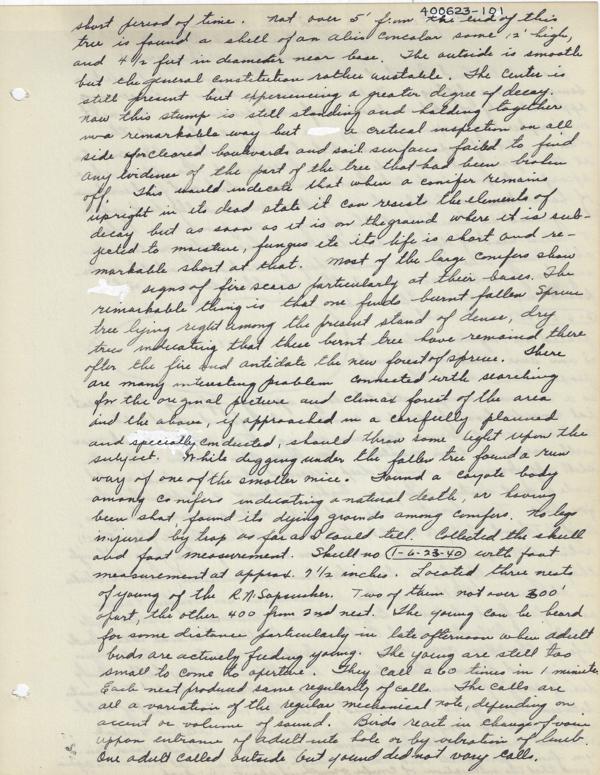 400623-101
short period of time. Not over 5' from the end of this
tree is found a shell of an abies concolor some 12' high,
and 4 1/2 feet in diameter near base. The outside is smooth
but the general constitution rather unstable. The center is
still present but experiencing a greater degree of decay.
Now this stump is still standing and holding together
in a remarkable way but a critical inspection on all
side for cleared boulvards and soil surfaces failed to find
any evidence of the part of the tree that had been broken
off. This would indicate that when a conifer remains
upright in its dead state it can resist the elements of
decay but as soon as it is on the ground where it is sub-
jected to moisture, fungus etc its life is short and re-
markable short at that. Most of the large conifers show
signs of fire scars particularly at their bases. The
remarkable thing is that one finds burnt fallen Spruce
tree lying right among the present stand of dense, dry
trees indicating that these burnt tree have remained there
after the fire and antidate the new forest of spruce. There
are many interesting problem connected with searching
for the original picture and climax forest of the area
and the above, if approached in a carefully planned
and specially conducted, should throw some light upon the
subject. While digging under the fallen tree found a run
way of one of the smaller mice. Found a coyote body
among conifers indicating a natural death, or having
been shot found its dying grounds among conifers. No legs
injured by trap as far as I could tell. Collected the skull
and foot measurement. Skull no (1-6-23-40) with foot
measurement at approx. 7 1/2 inches. Located three nests
of young of the R.N. Sapsucker. Two of them not over 300'
apart, the other 400 from 2nd nest. The young can be heard
for some distance particularly in late afternoon when adult
birds are actively feeding young. The young are still too
small to come to aperture. They call 260 times in 1 minute.
Each nest produced same regularity of calls. The calls are
all a variation of the regular mechanical note, depending on
accent or volume of sound. Birds react in change of voice
uppon entrance of adult into hole or by vibration of limb.
One adult called outside but yound did not vary calls.